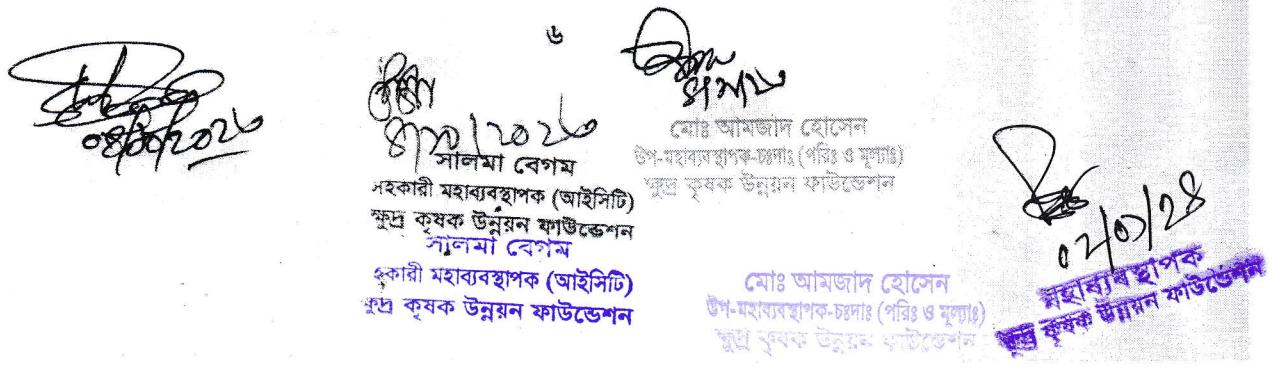 ৬
সালমা বেগম
সহকারী মহাব্যবস্থাপক (আইসিটি)
ক্ষুদ্র কৃষক উন্নয়ন ফাউন্ডেশন
সালমা বেগম
হকারী মহাব্যবস্থাপক (আইসিটি)
ক্ষুদ্র কৃষক উন্নয়ন ফাউন্ডেশন
মোঃ আমজাদ হোসেন
উপ-মহাব্যবস্থাপক-চঃদাঃ (পরিঃ ও মূল্যাঃ)
ক্ষুদ্র কৃষক উন্নয়ন ফাউন্ডেশন
মোঃ আমজাদ হোসেন
উপ-মহাব্যবস্থাপক-চঃদাঃ (পরিঃ ও মূল্যাঃ)
ক্ষুদ্র কৃষক উন্নয়ন ফাউন্ডেশন
মহাব্যবস্থাপক
ক্ষুদ্র কৃষক উন্নয়ন ফাউন্ডেশন